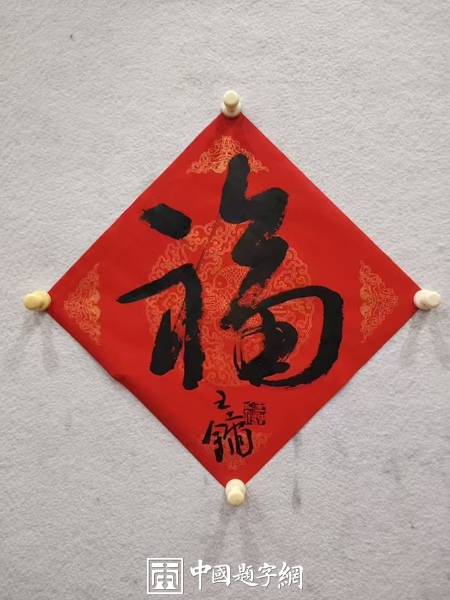 福
王镛
中國题字網